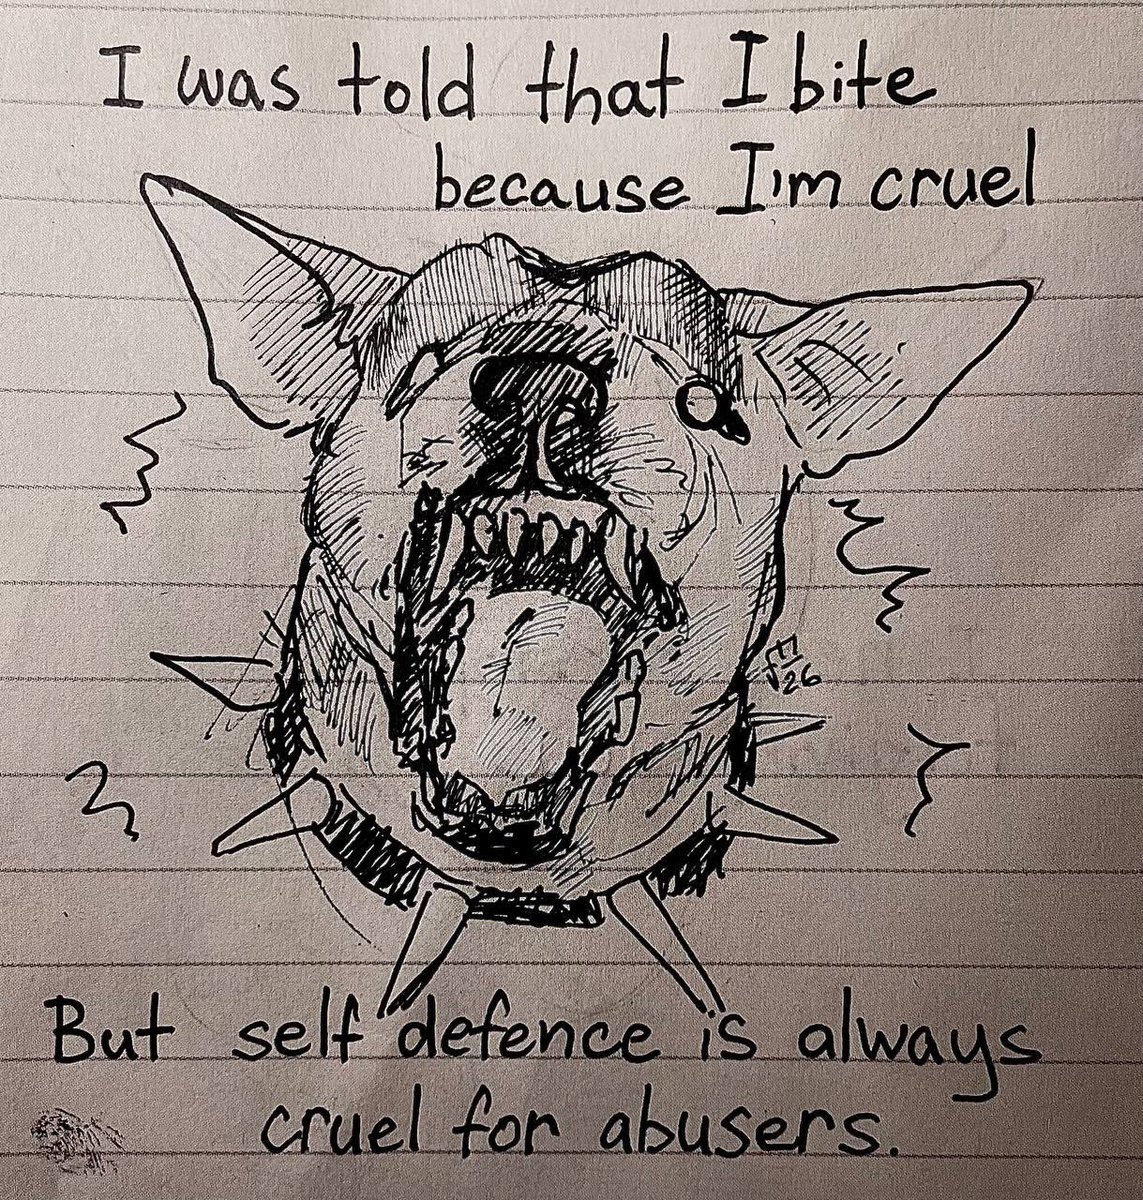 I was told that I bite
because I'm cruel
26
But self defence is always
cruel for abusers.